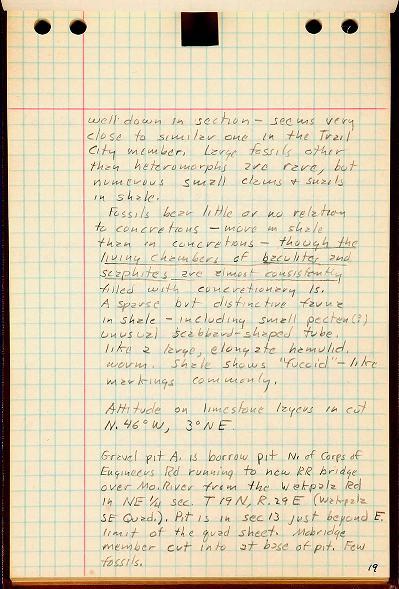 well down in section - seems very
close to similar one in the Trail
City member. Large fossils other
than heteromorphs are rare, but
numerous small clams & snails
in shale.
Fossils bear little or no relation
to concretions - more in shale
than in concretions - though the
living chambers of baculites and
scaphites are almost consistently
filled with concretionary ls.
A sparse but distinctive fauna
in shale - including small pecten(?)
unusual scabbard-shaped tube.
like a large, elongate hamulid.
worm. Shale shows "fucoid" - like
markings commonly.
Attitude on limestone layers in cut
N. 46° W, 3° NE.
Gravel pit A. is borrow pit N. of Corps of
Engineers Rd running to new RR bridge
over Mo. River from the Wakpala Rd
in NE 1/4 sec. T 19 N, R. 29 E (Wakpala
SE Quad.). Pit is in sec 13 just beyond E.
limit of the quad sheet. Mobridge
member cut into at base of pit. Few
fossils.
19